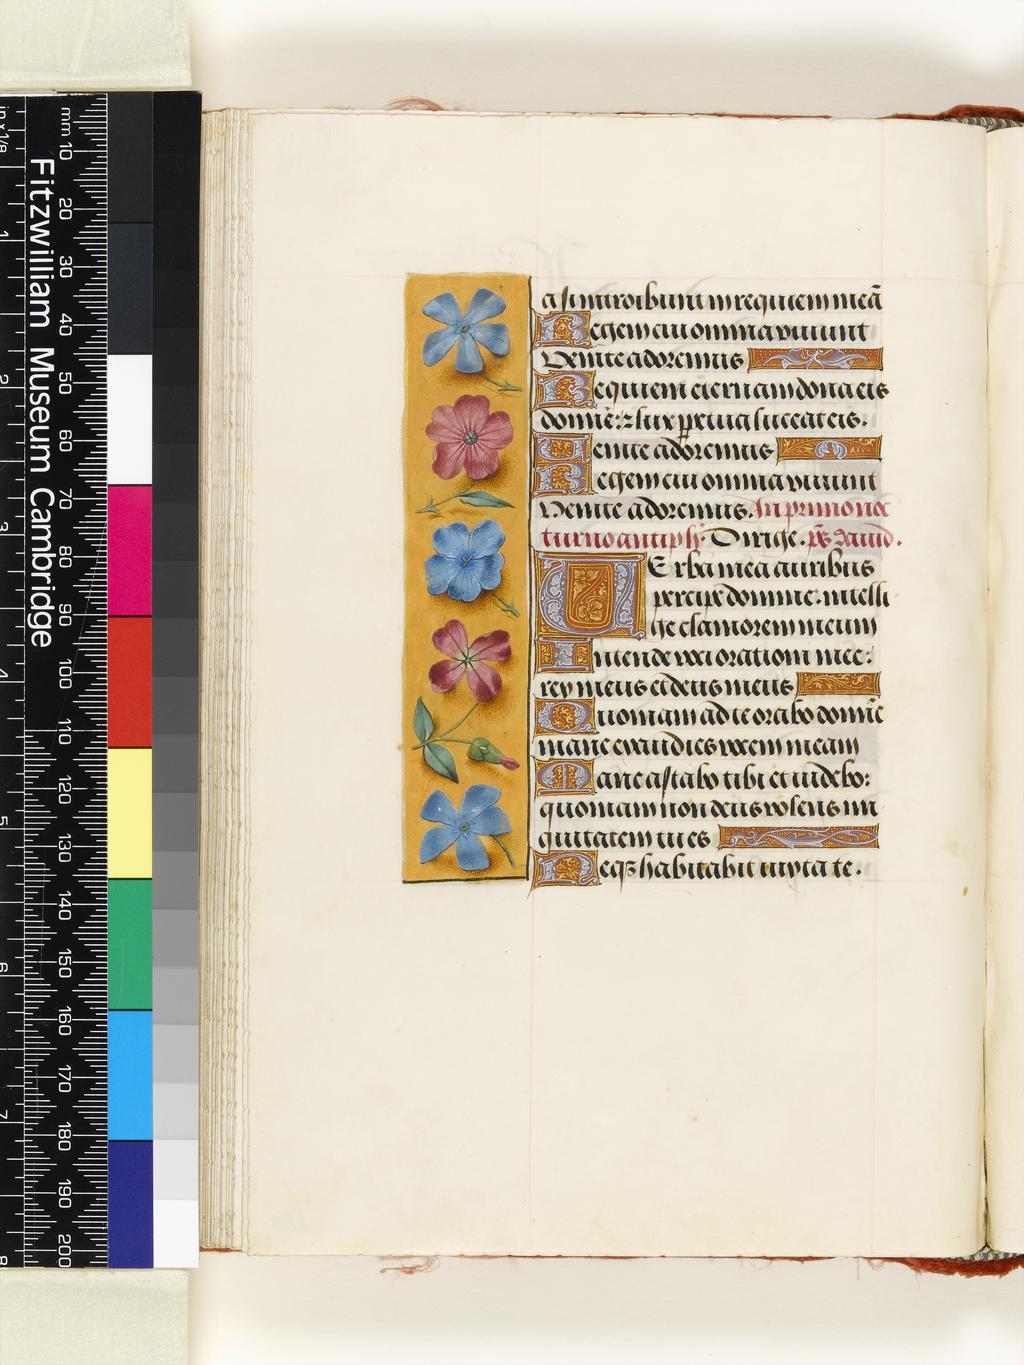 Fitzwilliam Museum Cambridge
mm 10 20 30 40 50 60 70 80 90 100 110 120 130 140 150 160 170 180 190 200
1 2 3 4 5 6 7 8
a si introibunt in requiem meā
Regem cui omnia vivunt
Venite adoremus
Requiem eternam dona eis
domine: & lux perpetua luceat eis.
Venite adoremus
Regem cui omnia vivunt
Venite adoremus. In primo noc
turno antiph. Dirige. ps David.
Verba mea auribus
percipe domine: intelli
ge clamorem meum
Intende voci orationi mee:
rex meus et deus meus
Quoniam ad te orabo domine
mane exaudies vocem meam
Mane astabo tibi et videbo:
quoniam non deus volens ini
quitatem tu es
Neqz habitabit iuxta te.